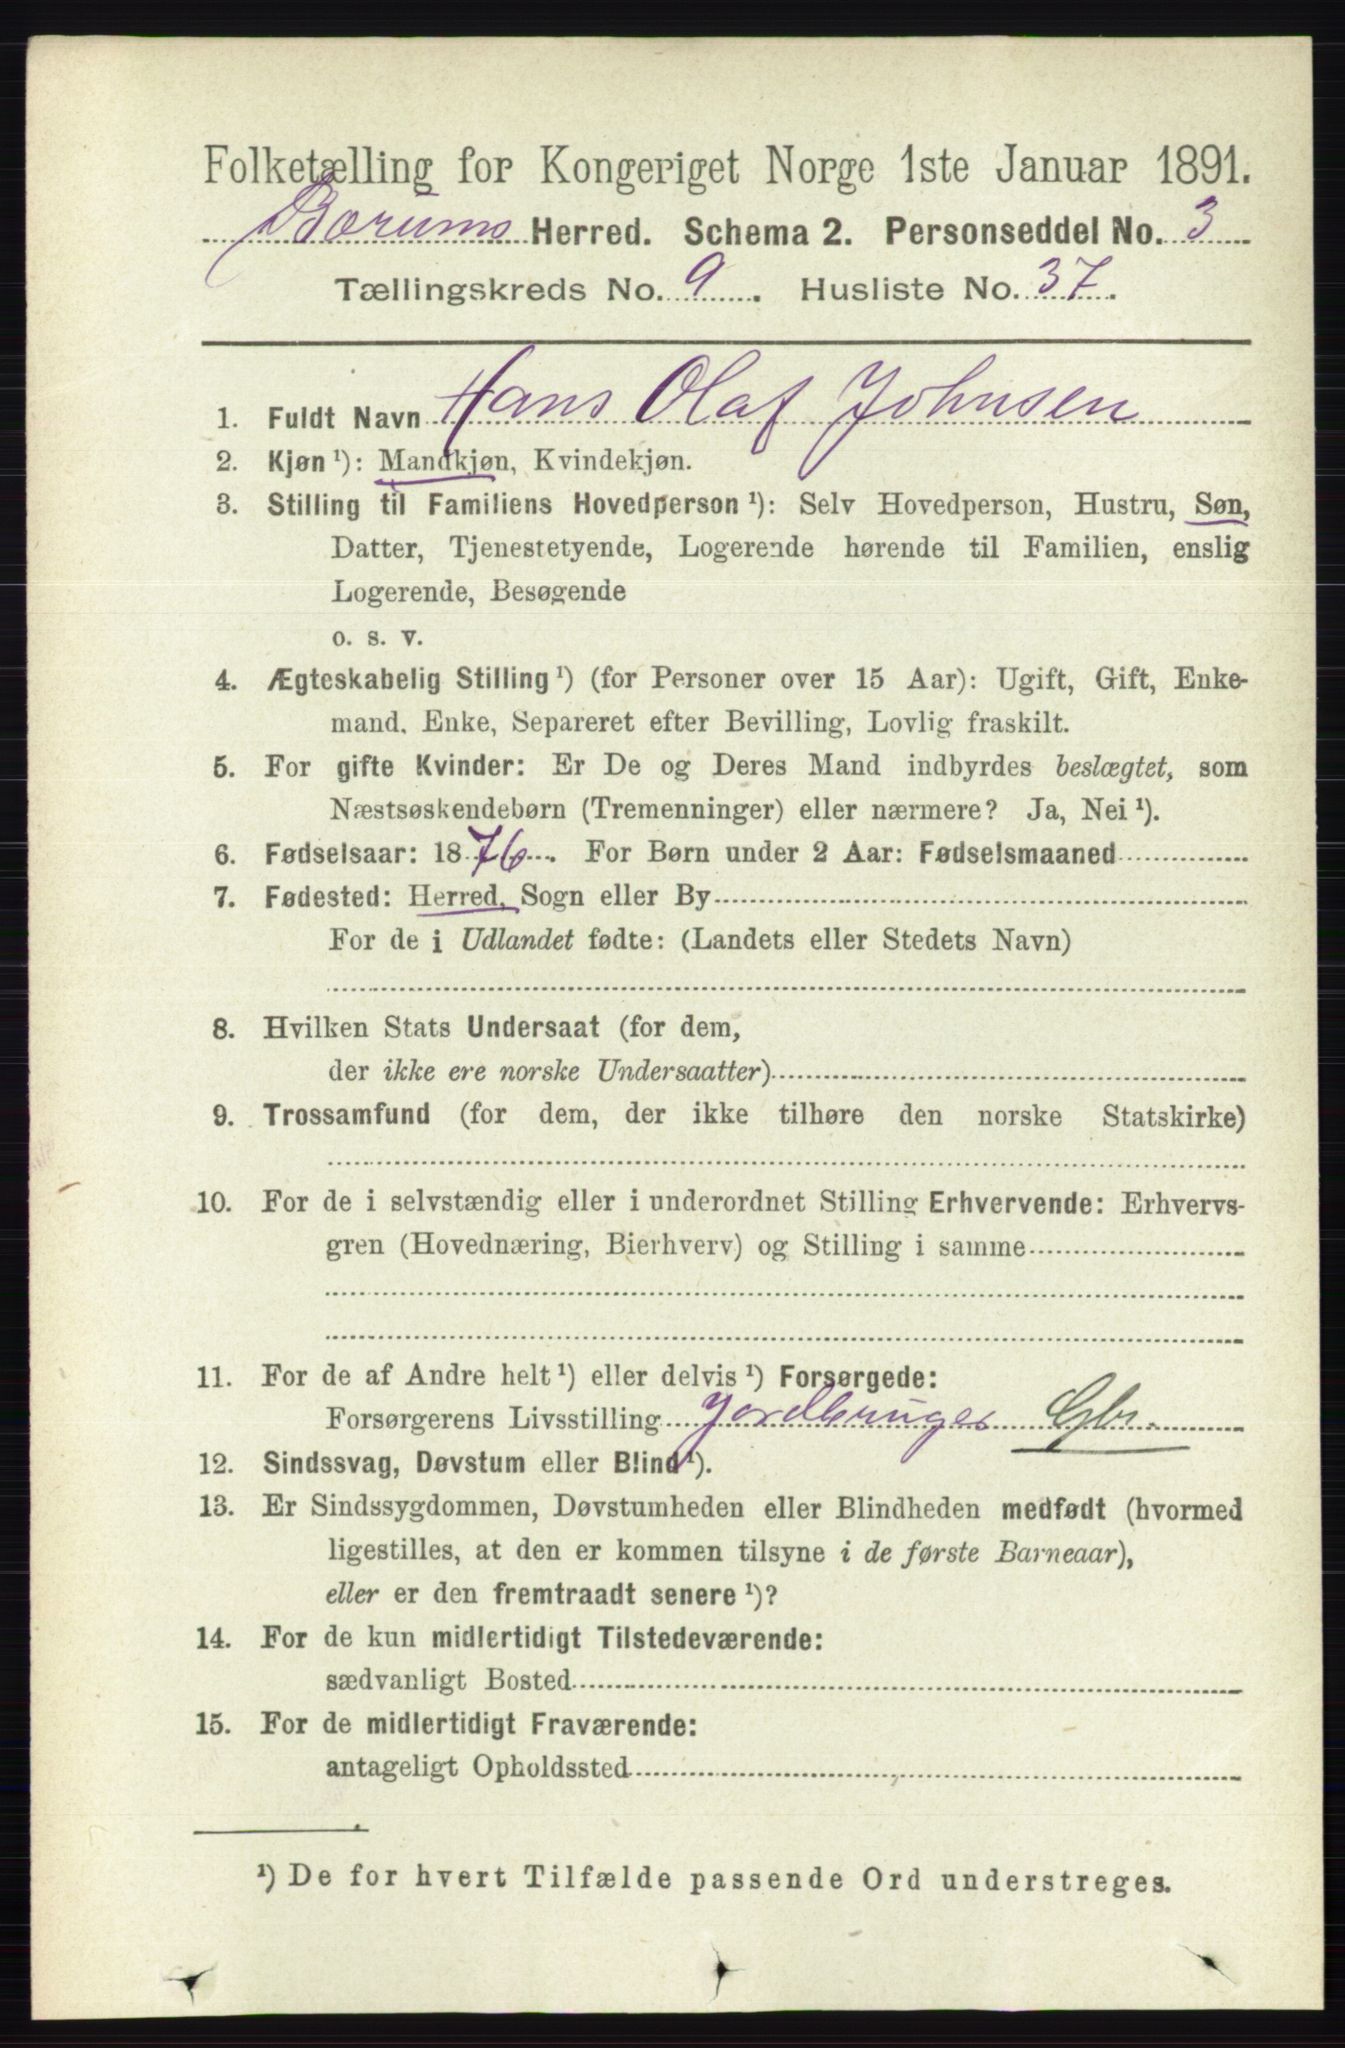 Folketælling for Kongeriget Norge 1ste Januar 1891.
Bærums Herred. Schema 2. Personseddel No. 3
Tællingskreds No. 9. Husliste No. 37.
1. Fuldt Navn Hans Olaf Johnsen
2. Kjøn ¹): Mandkjøn, Kvindekjøn.
3. Stilling til Familiens Hovedperson ¹): Selv Hovedperson, Hustru, Søn,
Datter, Tjenestetyende, Logerende hørende til Familien, enslig
Logerende, Besøgende
o. s. v.
4. Ægteskabelig Stilling ¹) (for Personer over 15 Aar): Ugift, Gift, Enke-
mand, Enke, Separeret efter Bevilling, Lovlig fraskilt.
5. For gifte Kvinder: Er De og Deres Mand indbyrdes beslægtet, som
Næstsøskendebørn (Tremenninger) eller nærmere? Ja, Nei ¹).
6. Fødselsaar: 1876. For Børn under 2 Aar: Fødselsmaaned
7. Fødested: Herred, Sogn eller By
For de i Udlandet fødte: (Landets eller Stedets Navn)
8. Hvilken Stats Undersaat (for dem,
der ikke ere norske Undersaatter)
9. Trossamfund (for dem, der ikke tilhøre den norske Statskirke)
10. For de i selvstændig eller i underordnet Stilling Erhvervende: Erhvervs-
gren (Hovednæring, Bierhverv) og Stilling i samme
11. For de af Andre helt ¹) eller delvis ¹) Forsørgede:
Forsørgerens Livsstilling Jordbruger Gbr.
12. Sindssvag, Døvstum eller Blind ¹).
13. Er Sindssygdommen, Døvstumheden eller Blindheden medfødt (hvormed
ligestilles, at den er kommen tilsyne i de første Barneaar),
eller er den fremtraadt senere ¹)?
14. For de kun midlertidigt Tilstedeværende:
sædvanligt Bosted
15. For de midlertidigt Fraværende:
antageligt Opholdssted
¹) De for hvert Tilfælde passende Ord understreges.